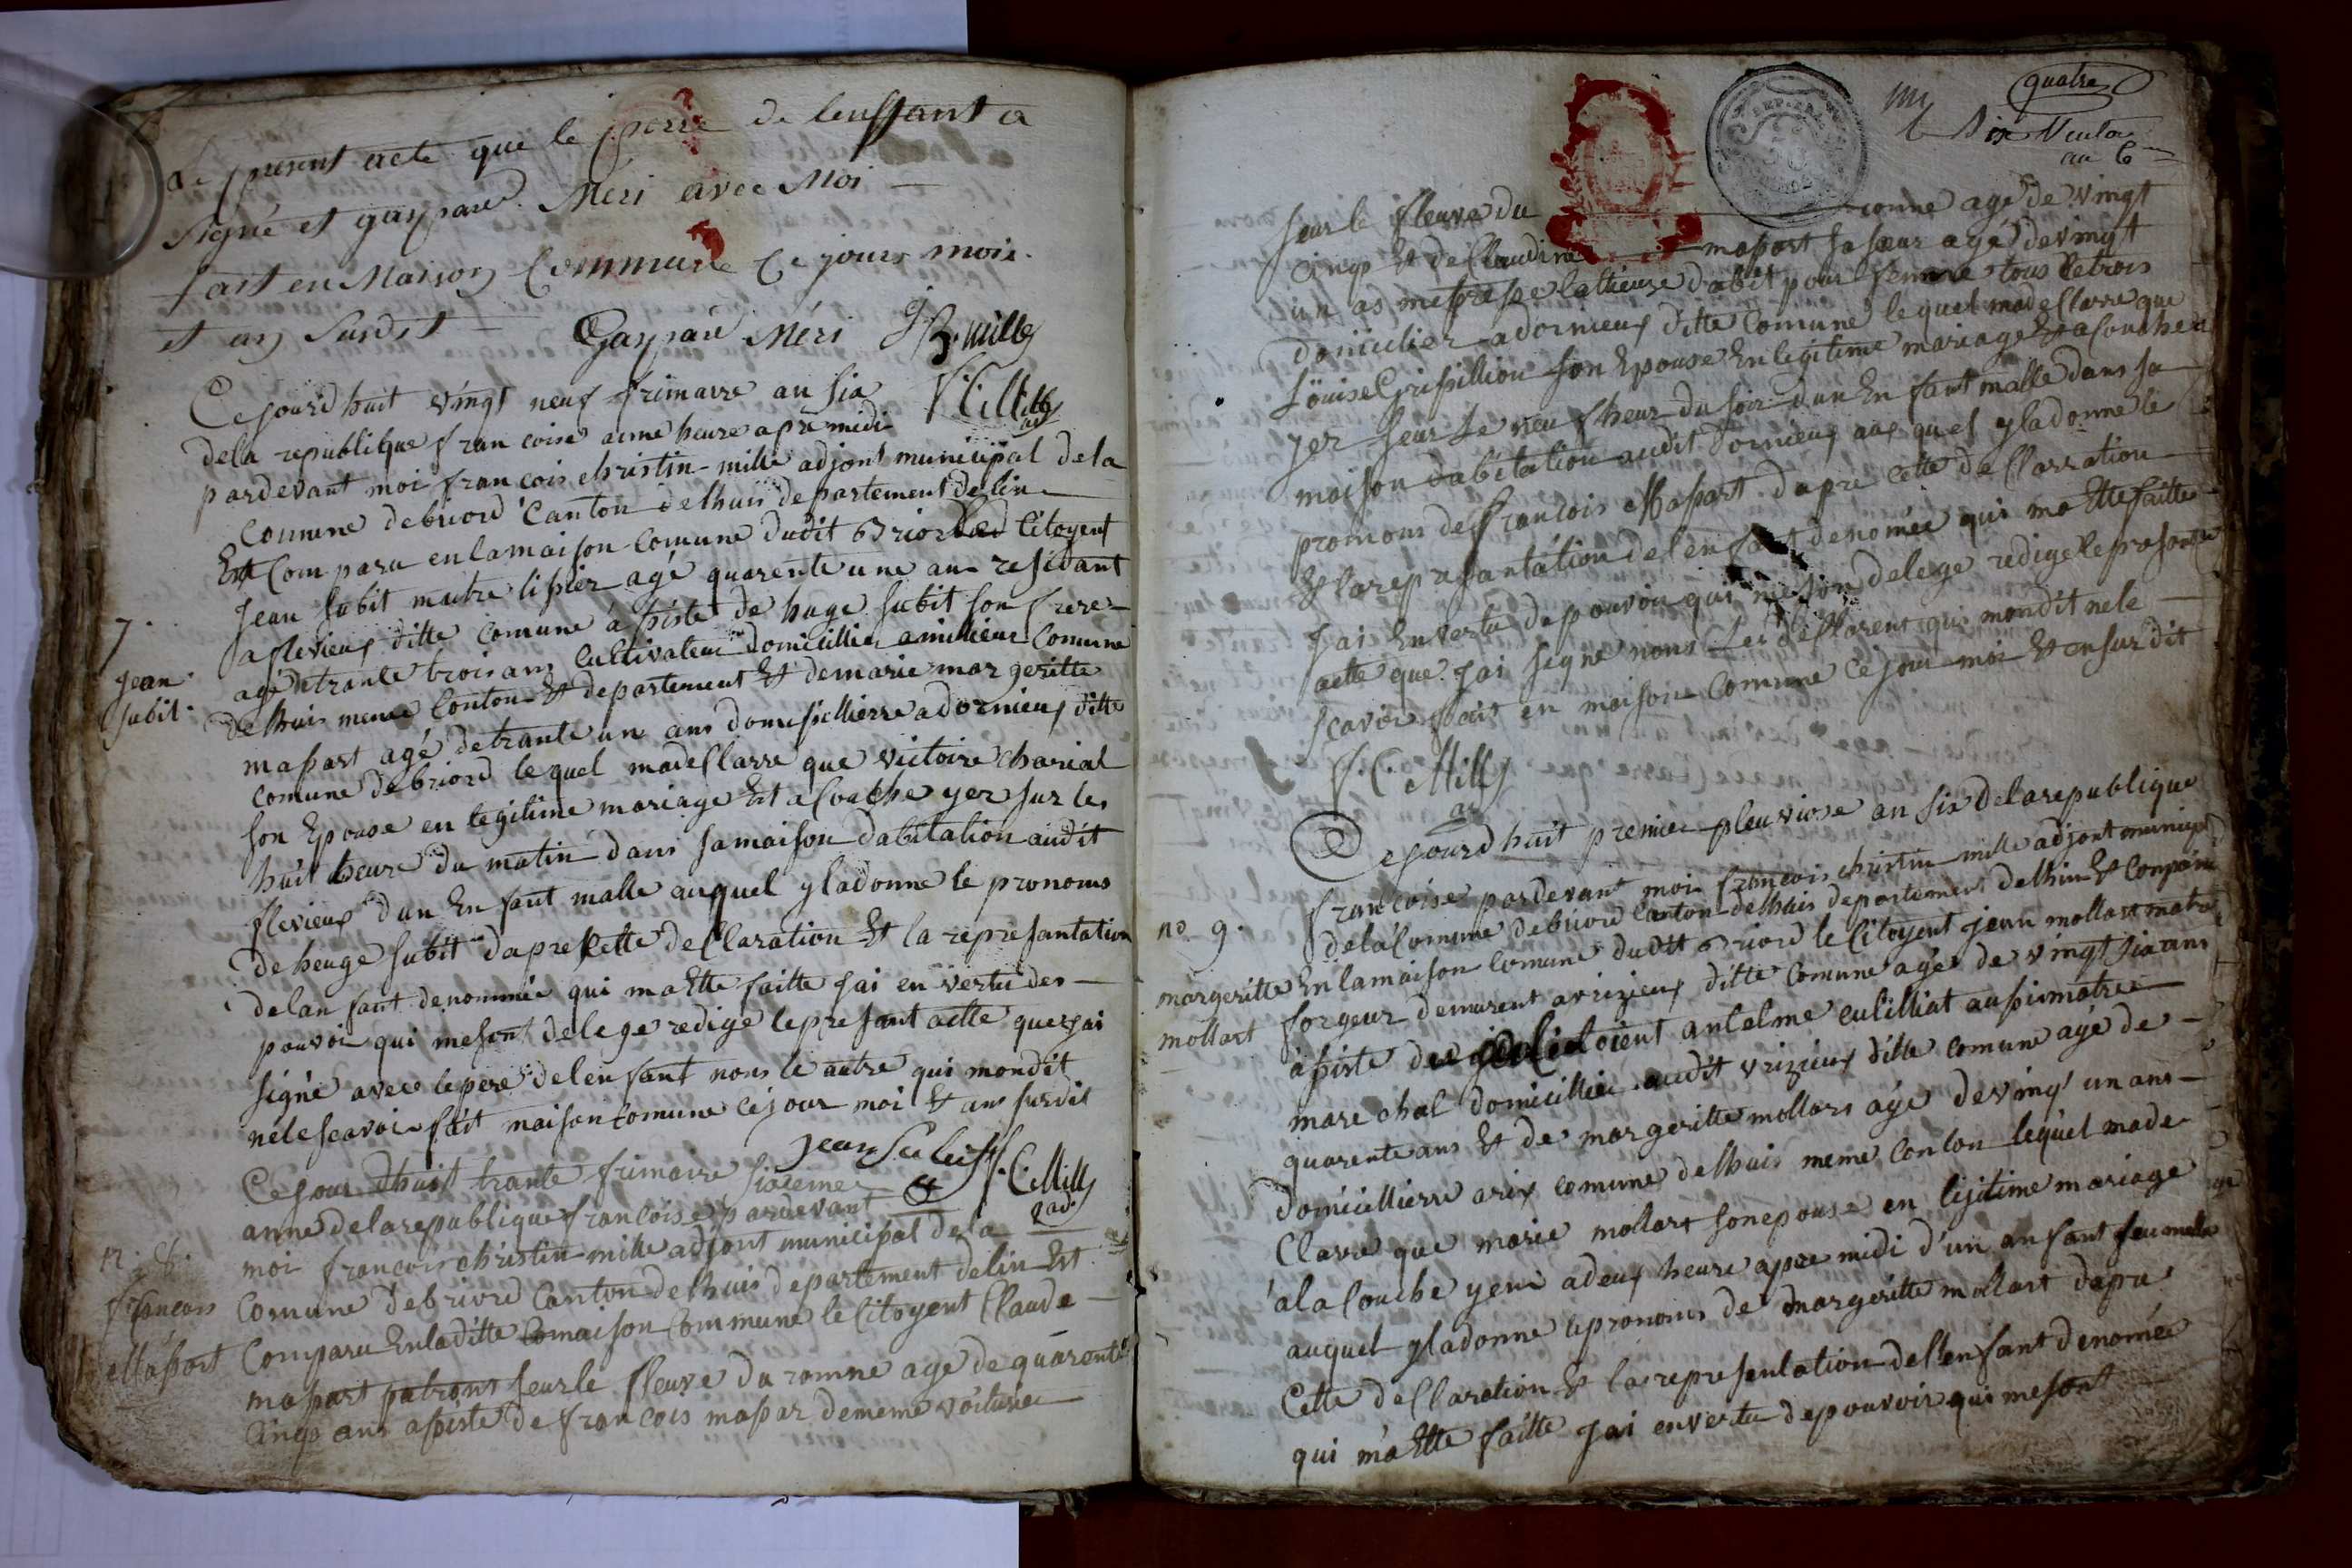 Le present acte que le pere de lenffant a
signé et gaspard Meri avec Moi
fait en Maison Commune Ce jour mois
et an Susdit
Gaspard Méri J B. Mille
F. C. Mille
adj
Cejourdhuit vingt neuf frimaire an six
dela republique francoise aune heure apre midi
pardevant moi francois christin mille adjont municipal dela
Comune debriord Canton delhuis departement delin
Est Comparu enlamaison Comune dudit Briord le Citoyent
7.
Jean
Subit.
Jean Subit maitre tisier agé quarente une ans residant
aflevieux ditte Comune a sisté de huge Subit son frere
agé detrante trois ans Cultivateur domicillier amillieux Comune
delhuis meme Conton Et departement Et demarie margeritte
masart agé detrante un ans domisillierre adornieux ditte
comune debriord lequel madeClarre que victoire charial
son Epouse en legitime mariage Est acouche yer sur les
huit heure du matin dans samaison dabitation audit
flevieux dun Enfant malle auquel yladonne le pronoms
deheuge Subit dapres Cette declaration Et la represantation
delanfant denommée qui ma Ette faitte Jai en vertu des
pouvoir qui mesont delege redige lepresant acte que jai
signé avec lepere delenfant nons le autre qui mondit
nélescavoir fait maison comune ce jour moi Et ans surdit
Jean Subit F. C. Mille
adj
Cejourdhuit trante frimaire sixieme
anne delarepublique francoise pardevant
n. 8.
francois
Masart
moi francois christin mille adjont municipal dela
Comune debriord Canton delhuis departement delin Est
Comparu Enladitte Comaison Commune le Citoyent Claude
masart patront seurle fleuve du romne age de quarente
Cinqs ans asisté de francois masar dememe voiturier
quatre
Six Ventose
au 6
seur le fleuve du romne agé de vingt
Cinqs Et de Claudine masart sa seur agé devingt
un as mesprese lattieuse dabit pour femme tous letrois
domicilier adornieux ditte Comune lequel madeClarre que
Löuise Grisillion son Epouse Enlegitime mariage Et acouche a
yer seur le neuf heur du soir dun Enfant malle dans sa
maison dabitation audit dornieux auquel yladonne le
pronoms de francois Masart dapre cette declarration
Et lareprasantation delenfant denomée qui ma Ette faitte
Jai Envertu depouvoir qui me son delege redige leprasante
acte que jai signe nons les desclarent qui mondit nele
scavoir fait en maison Comune Ce jour moi Et an surdit
F. C. Mille
ad
Cejourdhuit premier pleuviose an six delarepublique
francoise pardevant moi francois christin mille adjont municipal
no 9.
margeritte
mollart
dela Comune debriord Canton delhuis departement delhin Et Comparu
Enlamaison comune dudit Briord le Citoyent jean mollart matre
forgeur demurent avrizieux ditte Comune agée de vingt six ans
àsisté de Citoient antelme culilliat ausi matre
marechal domicillier audit vrizieux ditte comune agé de
quarente ans Et de margeritte mollart agé de vingt un ans
domicillierre arix comune delhuis meme Conton lequel made
Clare que marie mollart son epouse en lejitime mariage
ala Couche yeni adeux heure apre midi d'un anfant feumelle
auquel yladonne le pronoms de margeritte mollart dapre
Cette deClaration Et la representation dellenfant denomée
qui ma Ette faitte Jai envertu depouvoir qui mesont